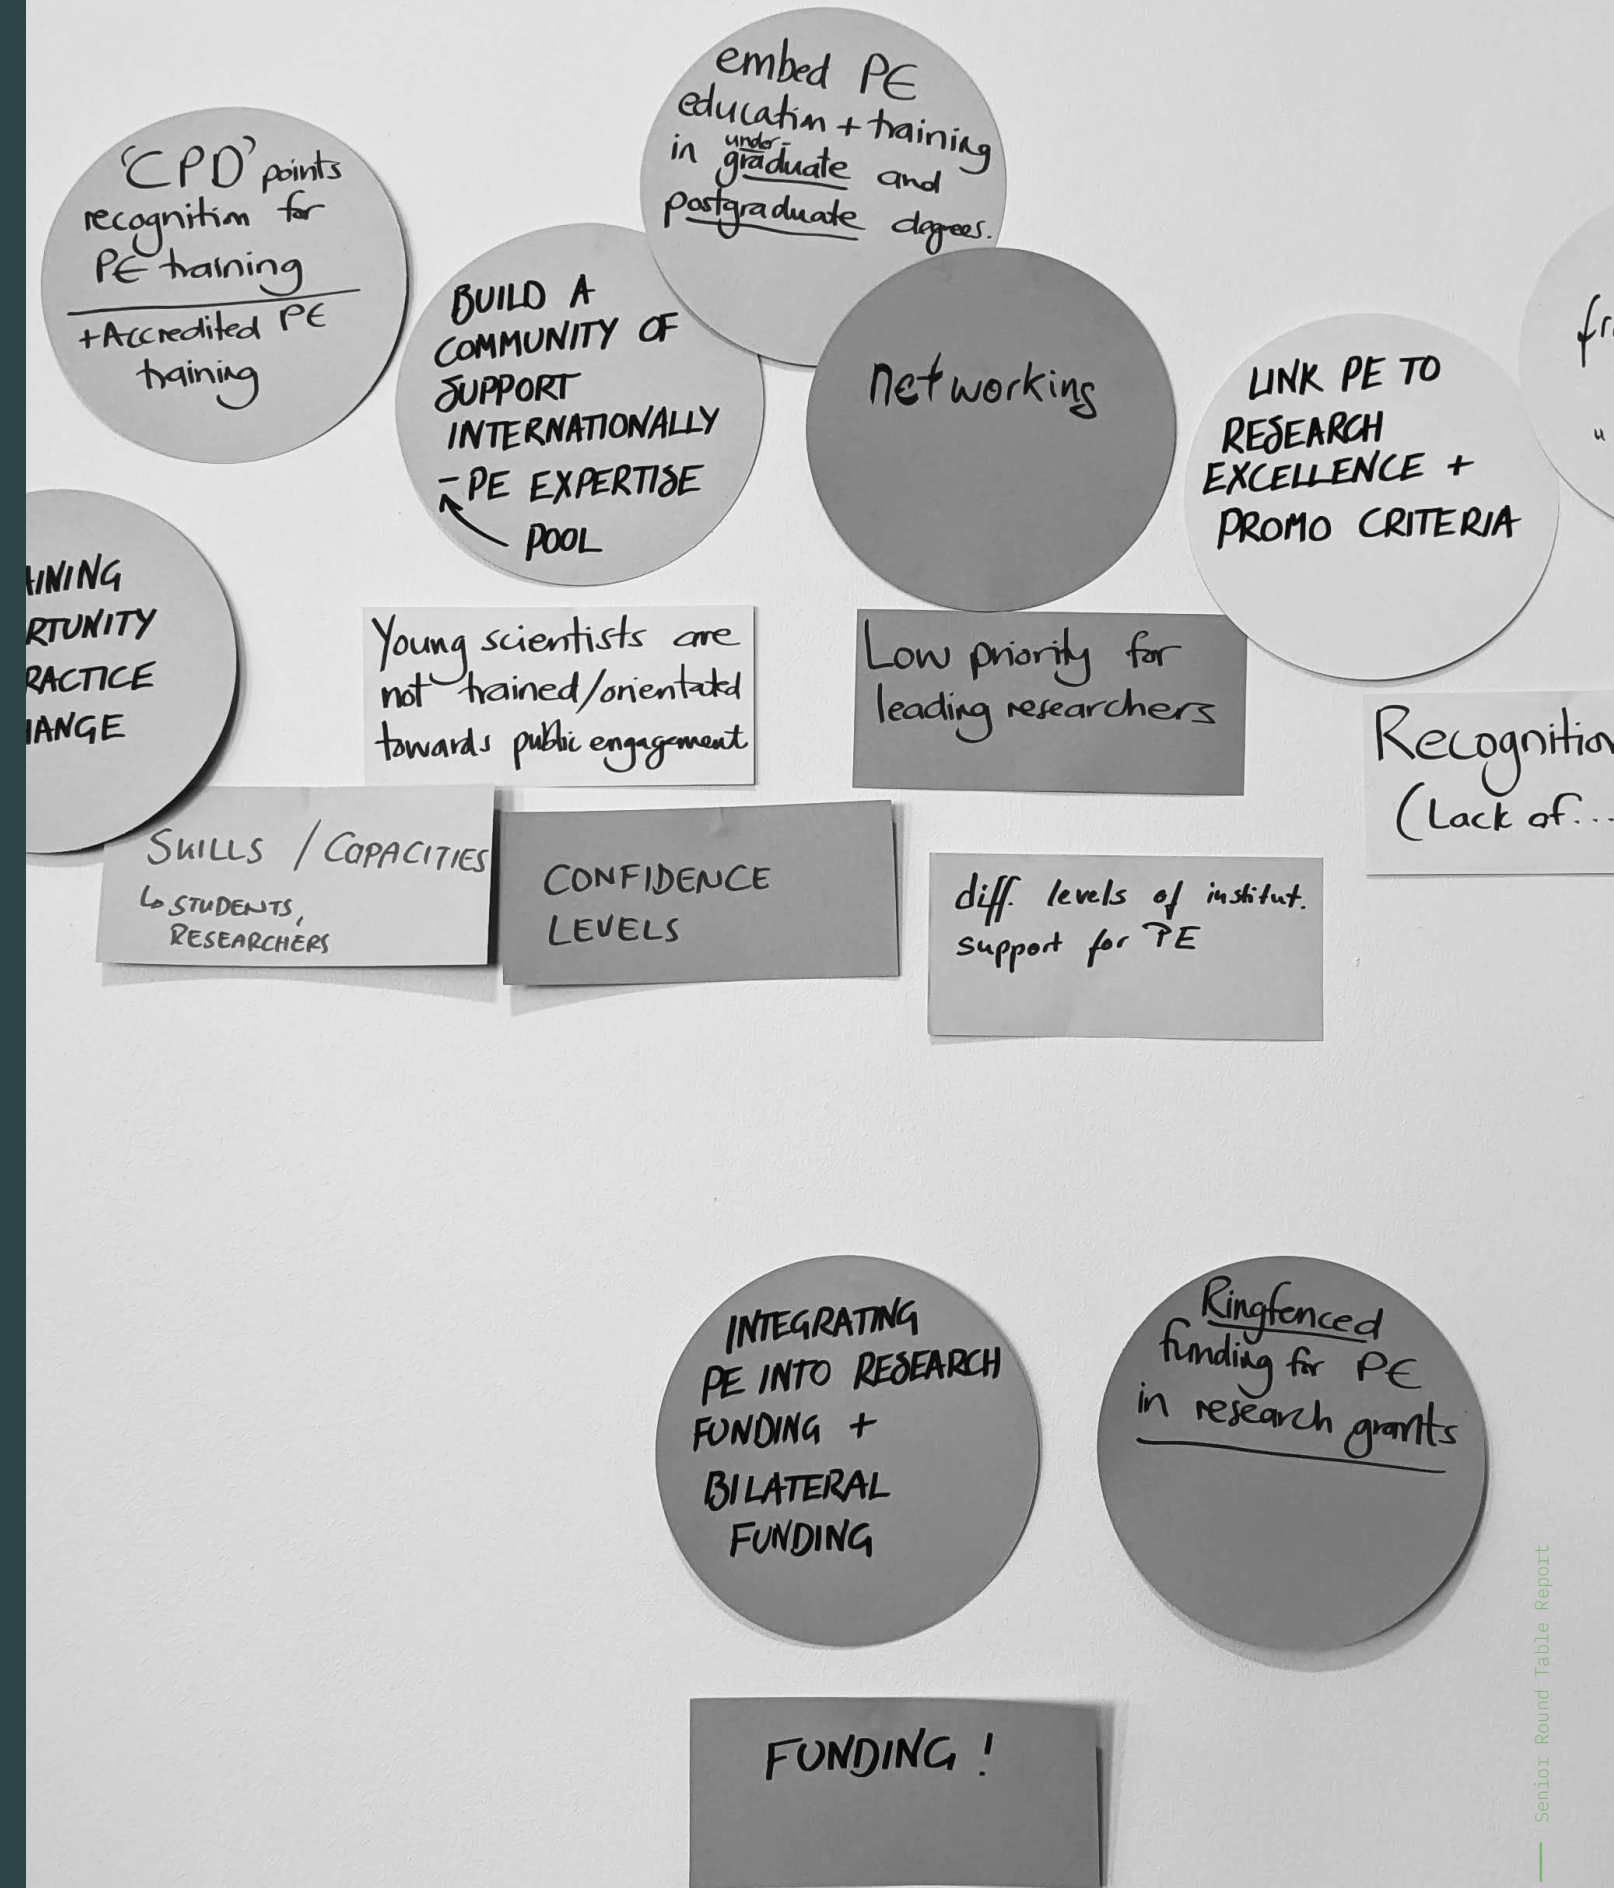 embed PE
education + training
in under-graduate and
postgraduate degrees.
'CPD' points
recognition for
PE training
+ Accredited PE
training
BUILD A
COMMUNITY OF
SUPPORT
INTERNATIONALLY
- PE EXPERTISE
POOL
networking
LINK PE TO
RESEARCH
EXCELLENCE +
PROMO CRITERIA
AINING
RTUNITY
RACTICE
HANGE
Young scientists are
not trained/orientated
towards public engagement
Low priority for
leading researchers
Recognition
(Lack of...
SKILLS / CAPACITIES
↳ STUDENTS,
RESEARCHERS
CONFIDENCE
LEVELS
diff. levels of institut.
support for PE
INTEGRATING
PE INTO RESEARCH
FUNDING +
BILATERAL
FUNDING
Ringfenced
funding for PE
in research grants
FUNDING !
Senior Round Table Report